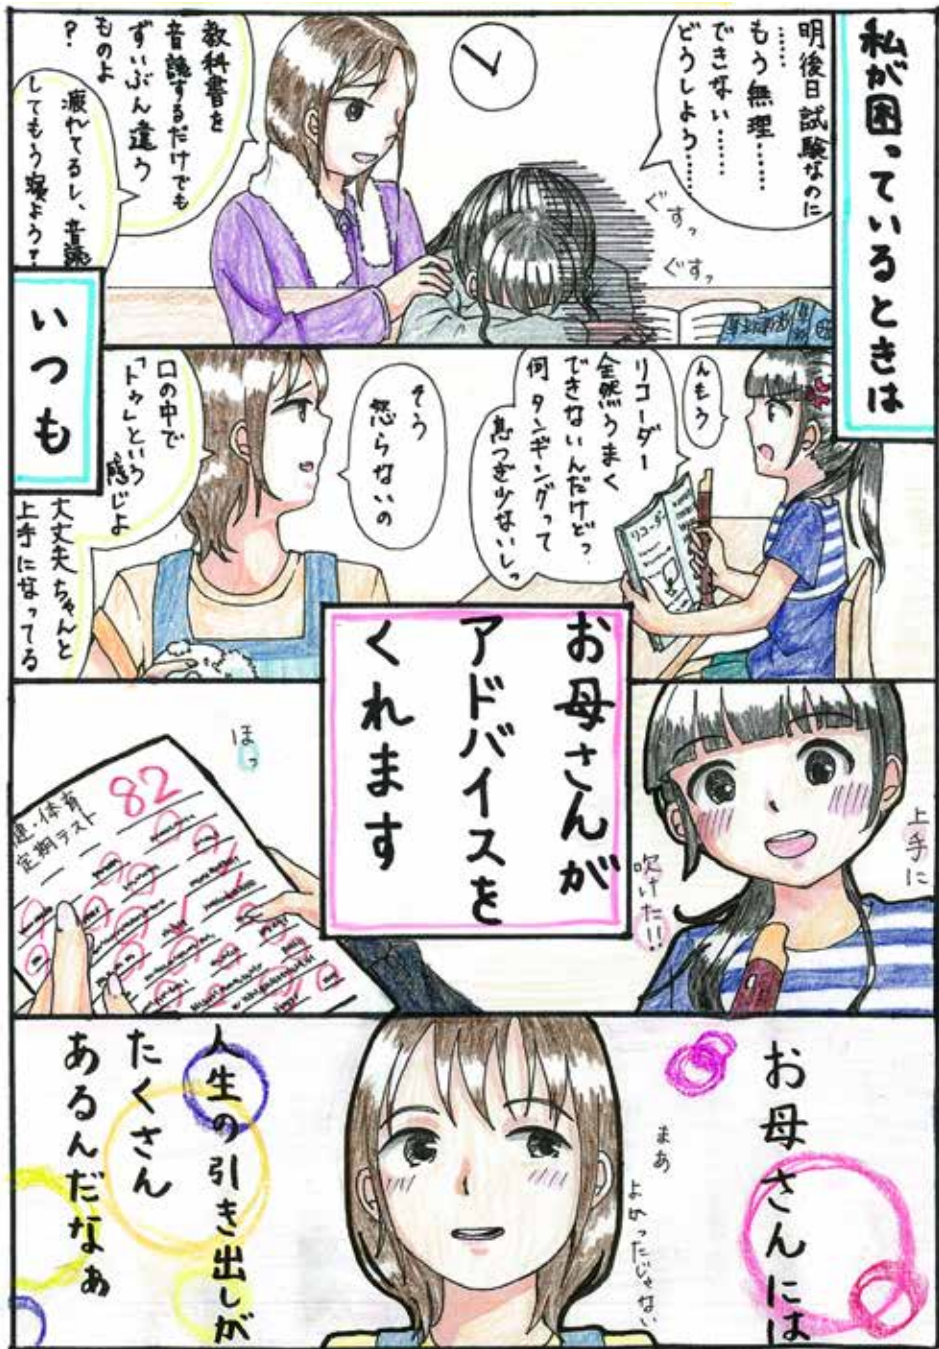 私が困っているときは
明後日試験なのに
……
もう無理……
できない……
どうしよう……
ぐすっ
ぐすっ
教科書を
音読するだけでも
ずいぶん違う
ものよ
?
疲れてるし、音読
してもう寝よう?
いつも
んもう
リコーダー
全然うまく
できないんだけどっ
何タンギングって
息つぎ少ないしっ
リコーダー
そう
怒らないの
口の中で
「トゥ」という
感じよ
大丈夫ちゃんと
上手になってる
お母さんが
アドバイスを
くれます
上手に
吹けた!!
ほっ
82
健・体育
定期テスト
お母さんには
まあ
よかったじゃない
人生の引き出しが
たくさん
あるんだなぁ